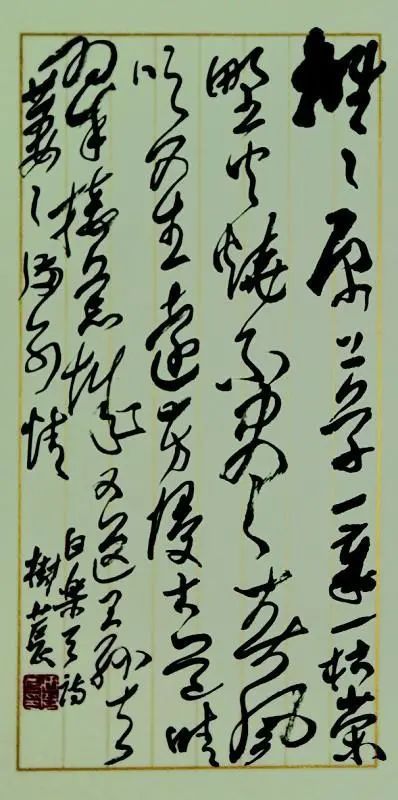 離〻原上草一歲一枯榮
野火燒不盡春風
吹又生遠芳侵古道晴
翠接荒城又送王孫去
萋〻滿別情
白樂天詩
樹